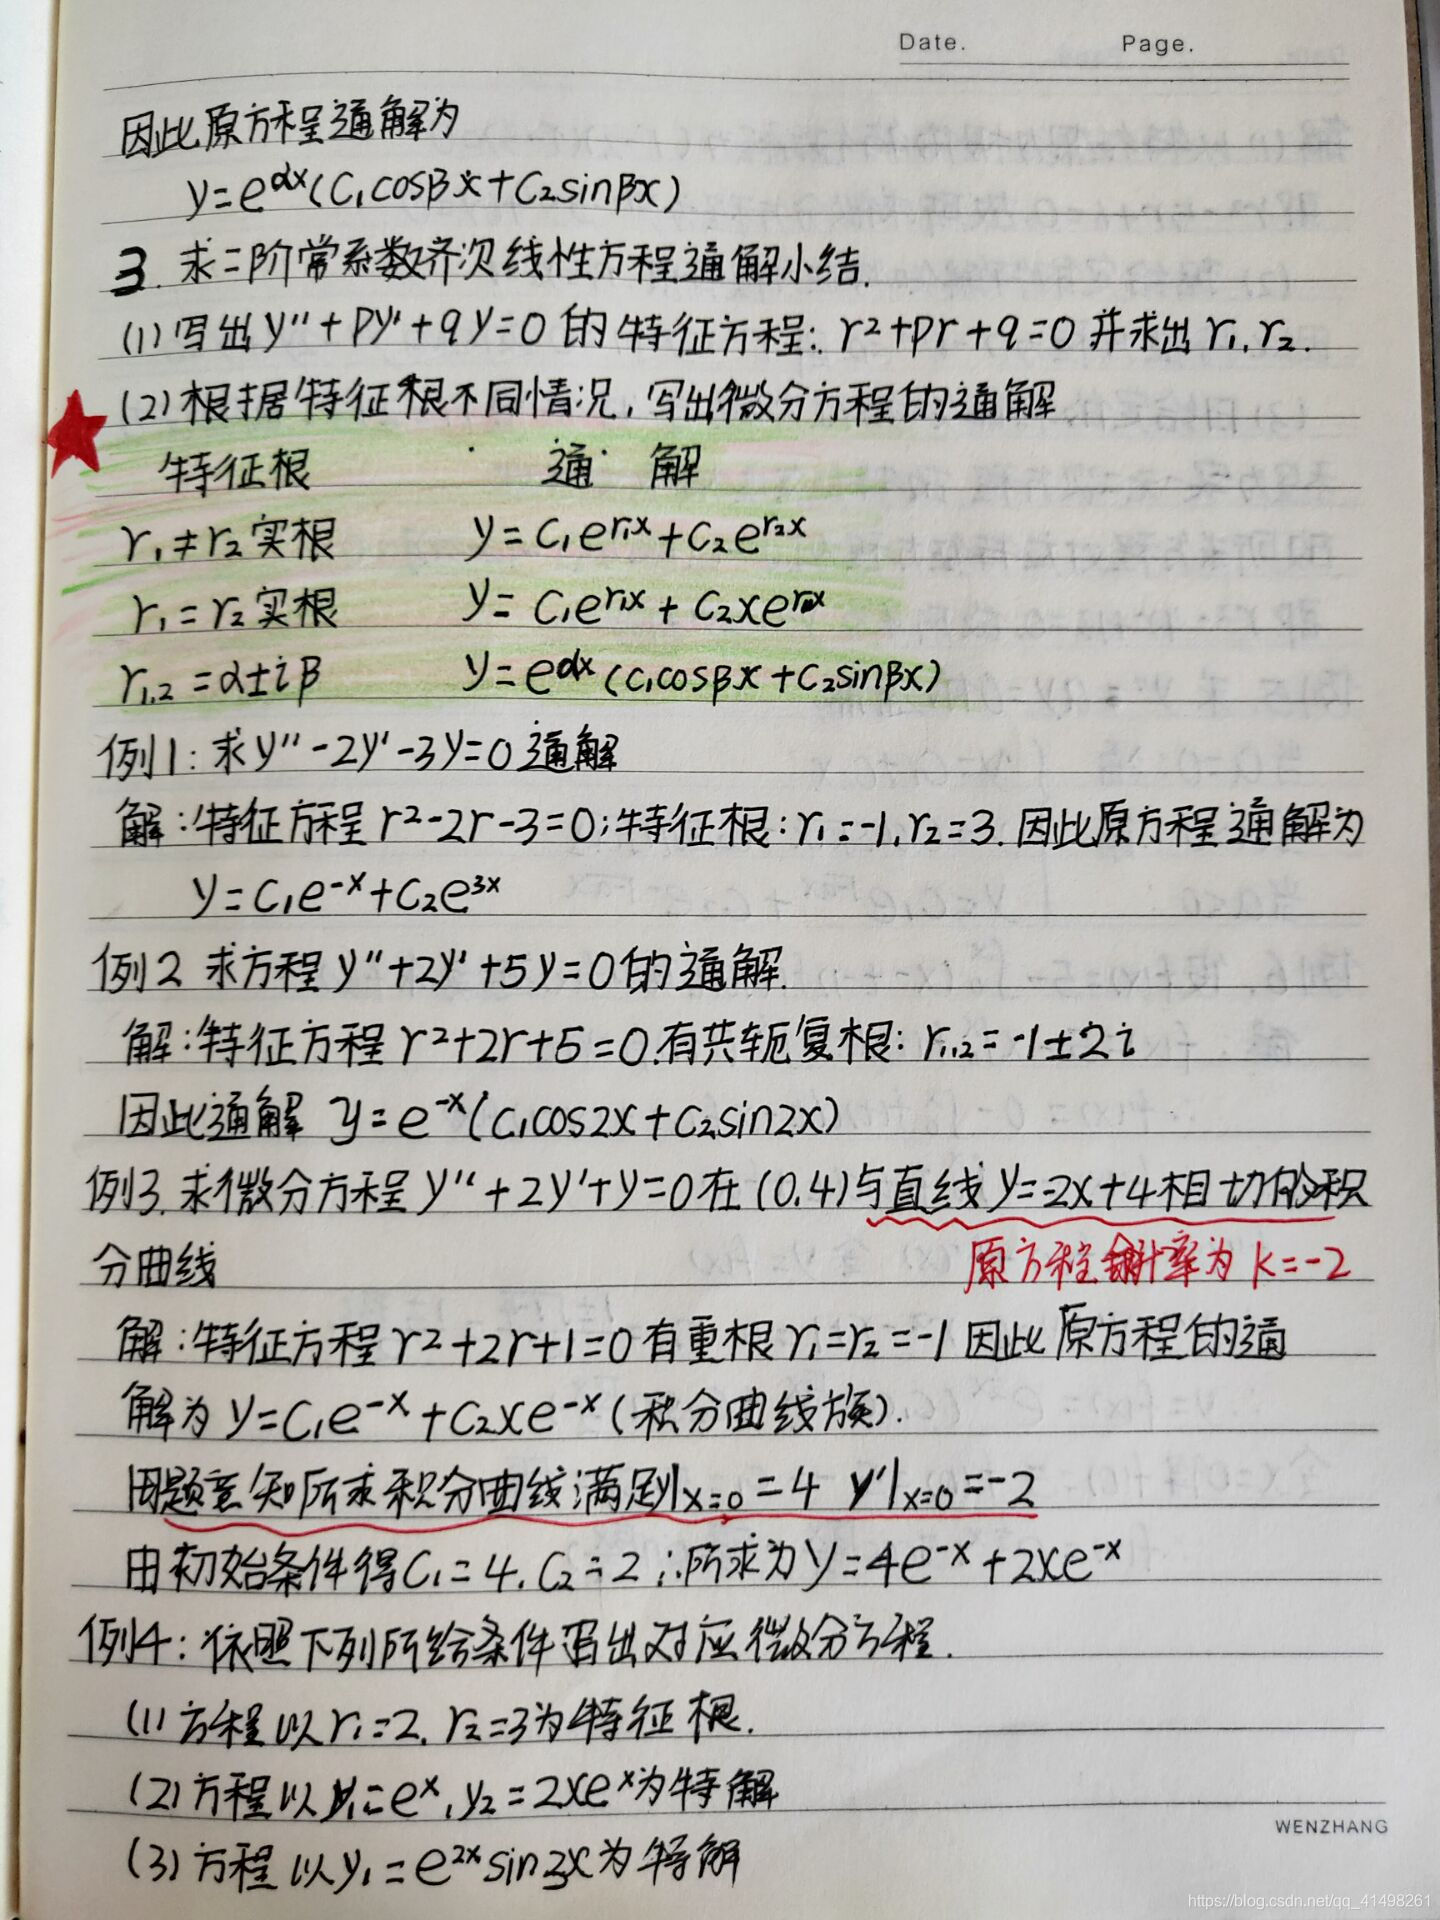 Date.    Page.
因此原方程通解为
y=e^αx(C₁cosβx+C₂sinβx)
3. 求二阶常系数齐次线性方程通解小结.
(1)写出y''+py'+qy=0的特征方程: r²+pr+q=0并求出r₁,r₂.
(2)根据特征根不同情况,写出微分方程的通解
特征根    通 解
r₁≠r₂实根    y=C₁e^r₁x+C₂e^r₂x
r₁=r₂实根    y=C₁e^r₁x+C₂xe^r₁x
r₁,₂=α±iβ    y=e^αx(C₁cosβx+C₂sinβx)
例1:求y''-2y'-3y=0通解
解:特征方程r²-2r-3=0;特征根:r₁=-1,r₂=3.因此原方程通解为
y=C₁e^-x+C₂e^3x
例2 求方程y''+2y'+5y=0的通解.
解:特征方程r²+2r+5=0.有共轭复根: r₁,₂=-1±2i
因此通解 y=e^-x(C₁cos2x+C₂sin2x)
例3.求微分方程y''+2y'+y=0在(0,4)与直线y=-2x+4相切的积
分曲线    原方程斜率为k=-2
解:特征方程r²+2r+1=0有重根r₁=r₂=-1因此原方程的通
解为y=C₁e^-x+C₂xe^-x(积分曲线族).
由题意知所求积分曲线满足y|x=0=4 y'|x=0=-2
由初始条件得C₁=4.C₂=2∴所求为y=4e^-x+2xe^-x
例4:依照下列所给条件写出对应微分方程.
(1)方程以r₁=2.r₂=3为特征根.
(2)方程以y₁=e^x,y₂=2xe^x为特解
(3)方程以y₁=e^2x sin3x为特解
WENZHANG
https://blog.csdn.net/qq_41498261